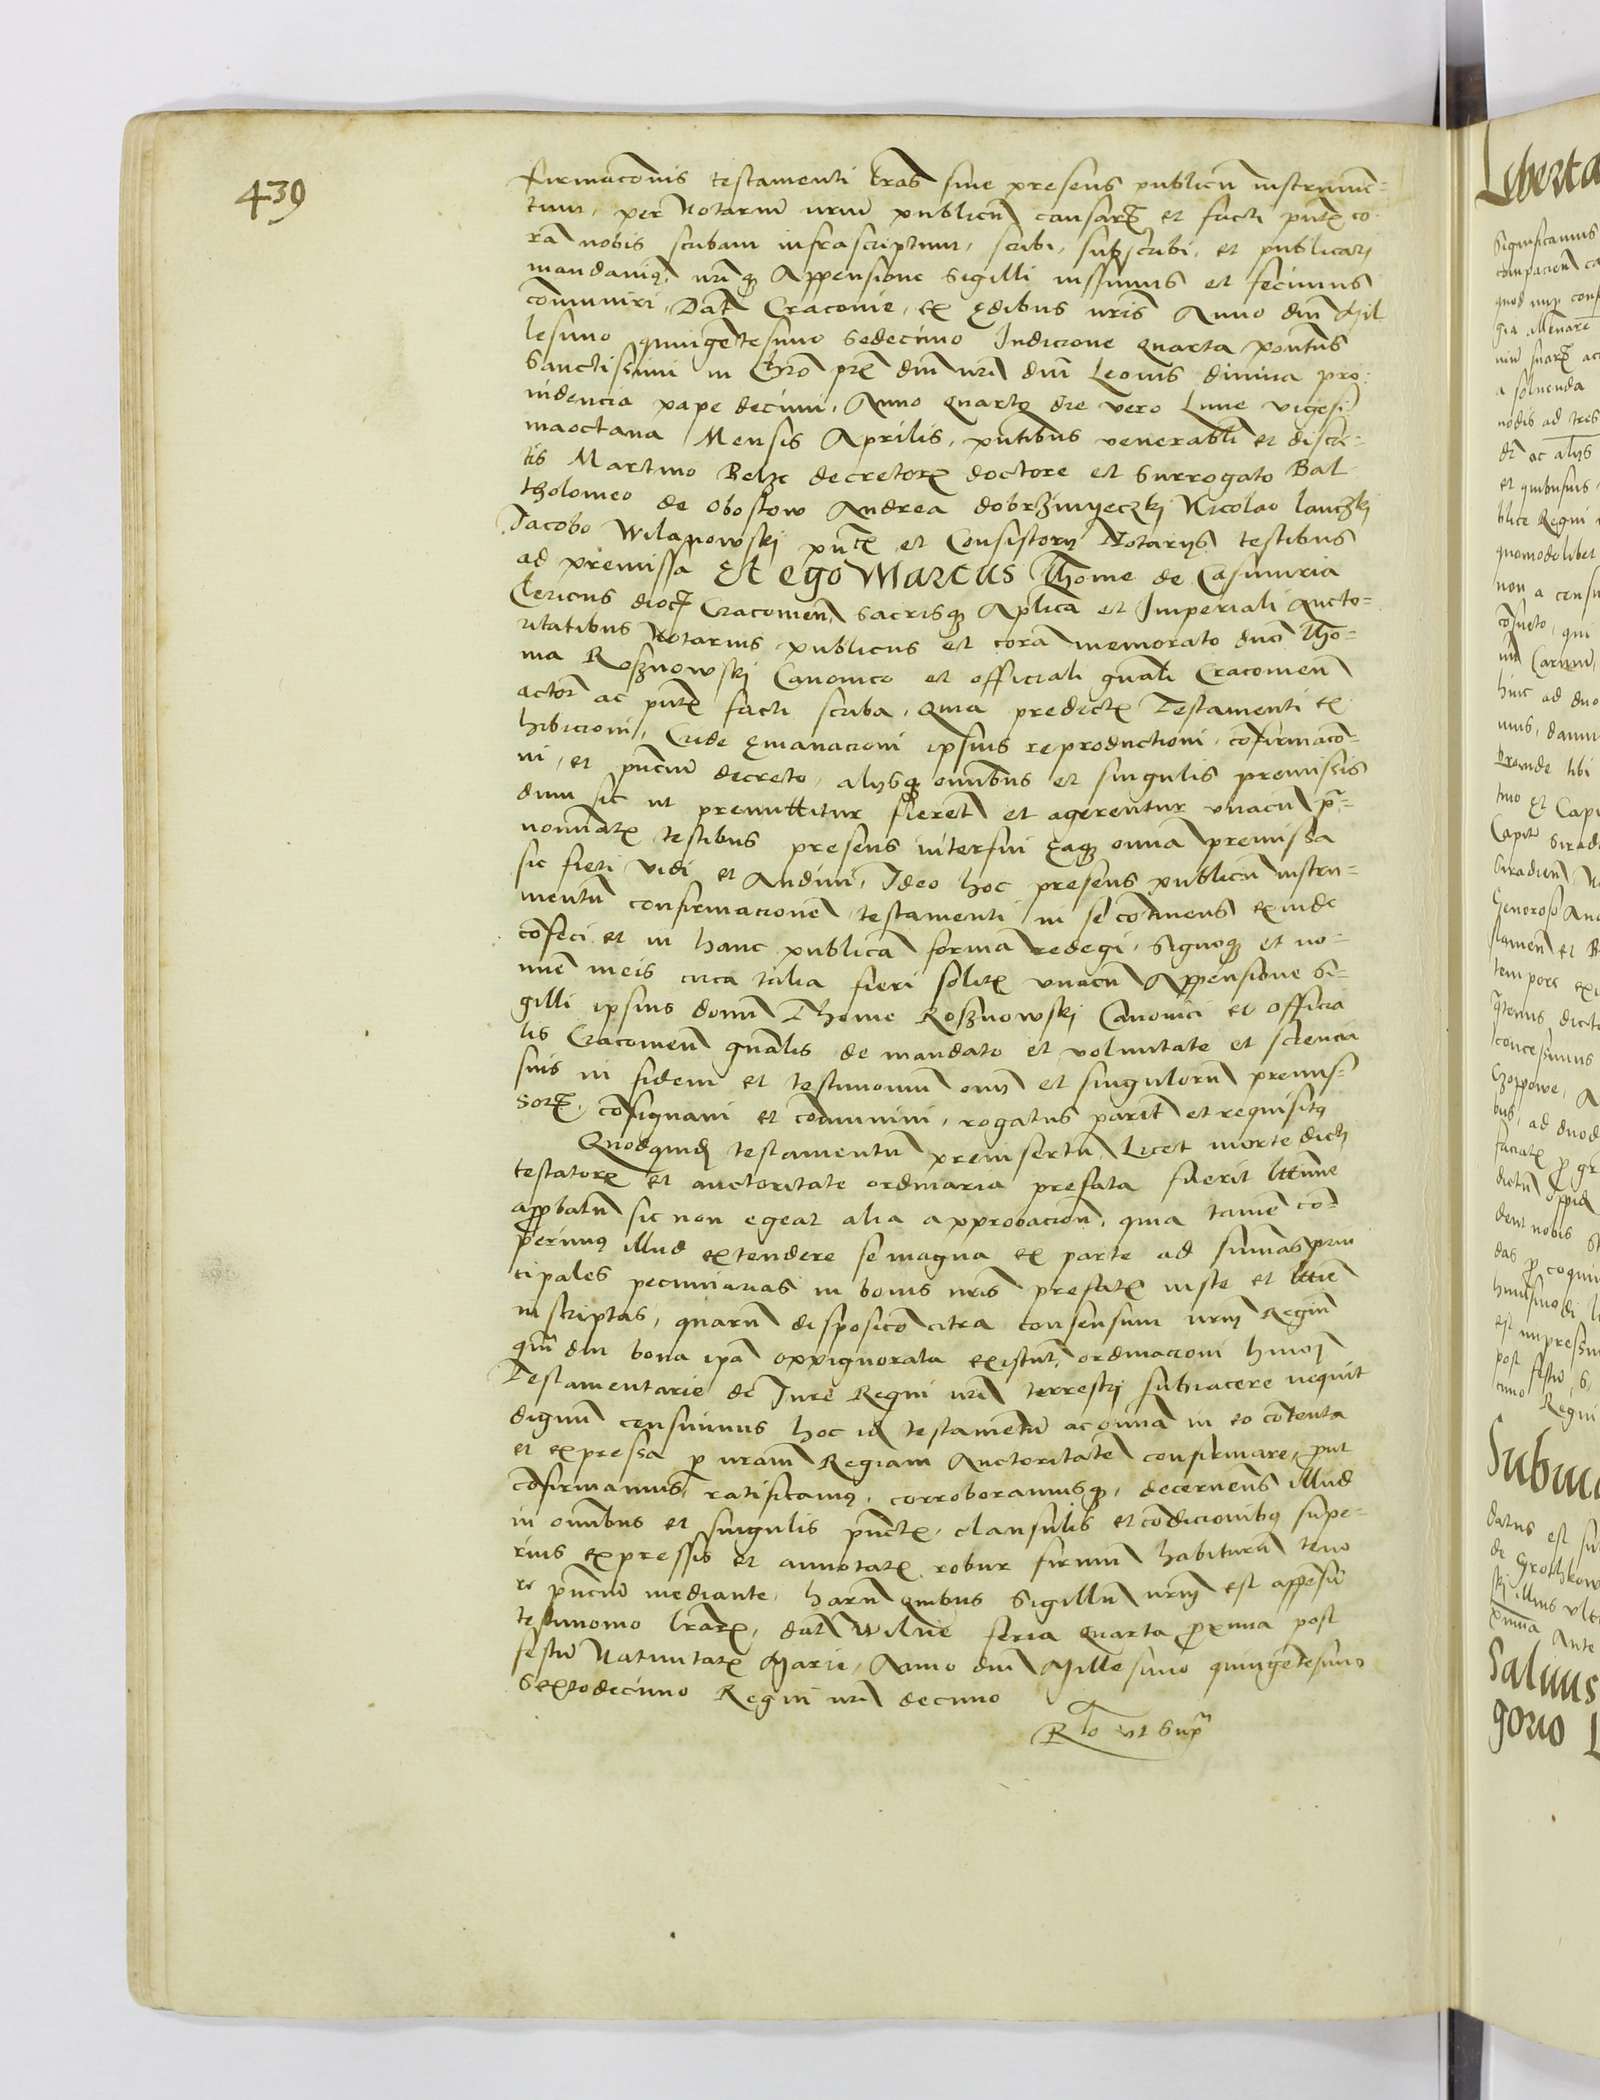 439
firmaconis testamenti lras sive presens publicu instrumen-
tum, per Notarium nrum publicu causar et facti pnte co-
ra nobis scribam infrascriptum, scribi, subscribi, et publicari
mandavimus, nri Appensione Sigilli iussimus et fecimus
comuniri, Dat Cracovie, ex ędibus nris Anno dni Mil-
lesimo quingētesimo sedecimo Indicione quarta pontus
Sanctissimi in Chro pre dni nri dni Leonis divina pro-
videncia pape decimi, Anno quarto die vero Lune vigesi-
maoctava Mensis Aprilis, pntibus venerabli et discre-
tis Martino Belze decretor doctore et Surrogato Bal-
tholomeo de Obostow Andrea dobrzinyeczki Nicolao lanczki
Jacobo Wilanowski et Consistorij Notarijs testibus
ad premissa Et ego Marcus Thome de Casimiria
Clericus dioc Cracovien, sacrisque Aplica et Imperiali aucto-
ritatibus Notarius publicus et cora memorato dno Tho-
ma Roznowski Canonico et officiali gnali Cracovien
actor ac pnte facti scriba, Quia predicte Testamenti ex
hibicioni, Cride ęmanacioni ipsius reproductioni, cofirmaco-
ni, et pncium decreto, alijsque omnibus et singulis premissis
dum sic ut premittitur fieret et agerentur unacu p-
nominate testibus presens interfui Eaque omnia premissa
sic fieri vidi et Audivi, Ideo hoc presens publicu instru-
mentu confirmacione testamenti in se cotinens exinde
cofeci et in hanc publica forma redegi, signoque et no-
mine meis circa talia fieri solite unacu Appensione Si-
gilli ipsius domini Thome Roznowski Canonici et Officia
lis Cracovien gnalis de mandato et voluntate et sciencia
suis in fidem et testimoniu oniu et singuloru premis-
sor, cosignavi et comunivi, rogatus parit et requisitus
Quodquidem testamentu preinsertu, Licet morte dicti
testatore et auctoritate ordinaria prefata fuerit lttime
approbatu sic non egeat alia approbacion, quia tamē co-
perimus illud extendere se magna ex parte ad sumas prin
cipales pecuniarias in bonis nris prefate iuste et lttie
inscriptas, quaru disposico citra consensum nrum Regiu
qmdiu bona ipa oppignorata existut, ordinacioni hmoi
Testamentarie de Jure Regni nri terrestri subiacere nequit
dignu censuimus hoc id testamentu ac omnia in eo cotenta
et expressa p nram Regiam Auctoritatē confirmare, prut
cofirmamus, ratificamus, corroboramusque, decernens illud
in omibus et singulis puncte, clausulis et codicionibus supe-
rius expressis et annotate robur firmu habituru teno
re pncium mediante, haru quibus Sigillu nrum est appesu
testimonio lrare, dat Wilne feria quarta proxima post
festu Nativitate Marie, Anno dni Millesimo quingētesimo
Sextodecimo Regni nri decimo
Rlo ut Supra
Liberta
Significamus
quod
a solvenda
nodis ad tres
de ac alijs
et quibusvis
blice Regni
quomodolibet
non a censu
cosueto, qui
hinc ad duo
tmo Et Capi
Capit Sirad
Siradien
Generoso And
tempore exi
concessimus
bus, ad duod
dictu oppid
dent nobis
est impressu
post festu, S
cimo Regni
datus est su
de Grothkow
xima Ante
Salvus
gorio L